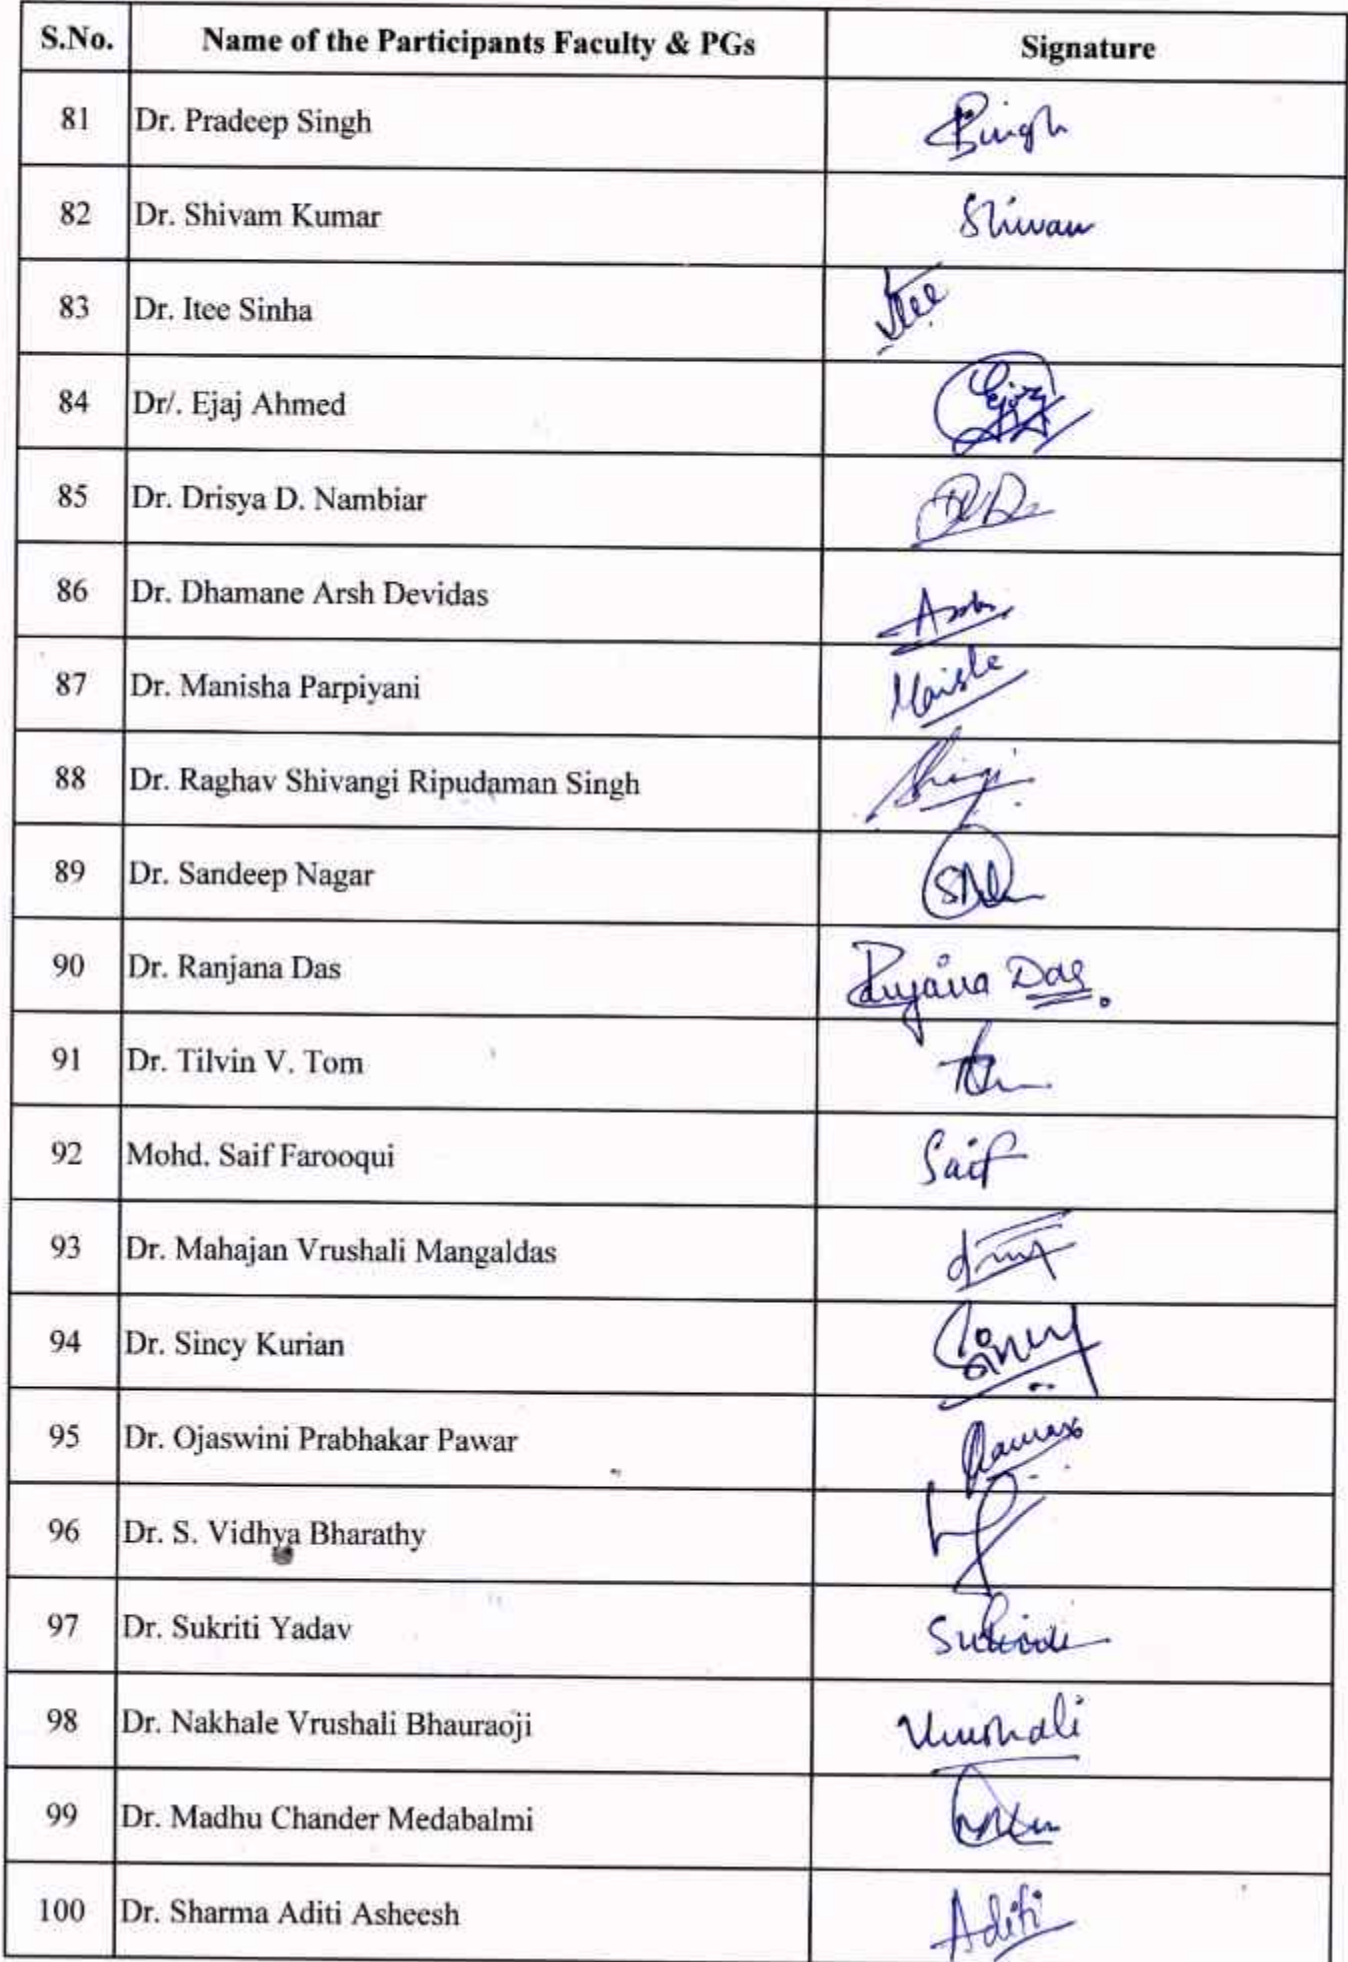 S.No. Name of the Participants Faculty & PGs Signature
81 Dr. Pradeep Singh Singh
82 Dr. Shivam Kumar Shivam
83 Dr. Itee Sinha Itee
84 Dr/. Ejaj Ahmed Ejaz
85 Dr. Drisya D. Nambiar
86 Dr. Dhamane Arsh Devidas
87 Dr. Manisha Parpiyani
88 Dr. Raghav Shivangi Ripudaman Singh
89 Dr. Sandeep Nagar
90 Dr. Ranjana Das Ranjana Das
91 Dr. Tilvin V. Tom
92 Mohd. Saif Farooqui Saif
93 Dr. Mahajan Vrushali Mangaldas
94 Dr. Sincy Kurian Sincy
95 Dr. Ojaswini Prabhakar Pawar
96 Dr. S. Vidhya Bharathy
97 Dr. Sukriti Yadav
98 Dr. Nakhale Vrushali Bhauraoji Vrushali
99 Dr. Madhu Chander Medabalmi
100 Dr. Sharma Aditi Asheesh Aditi